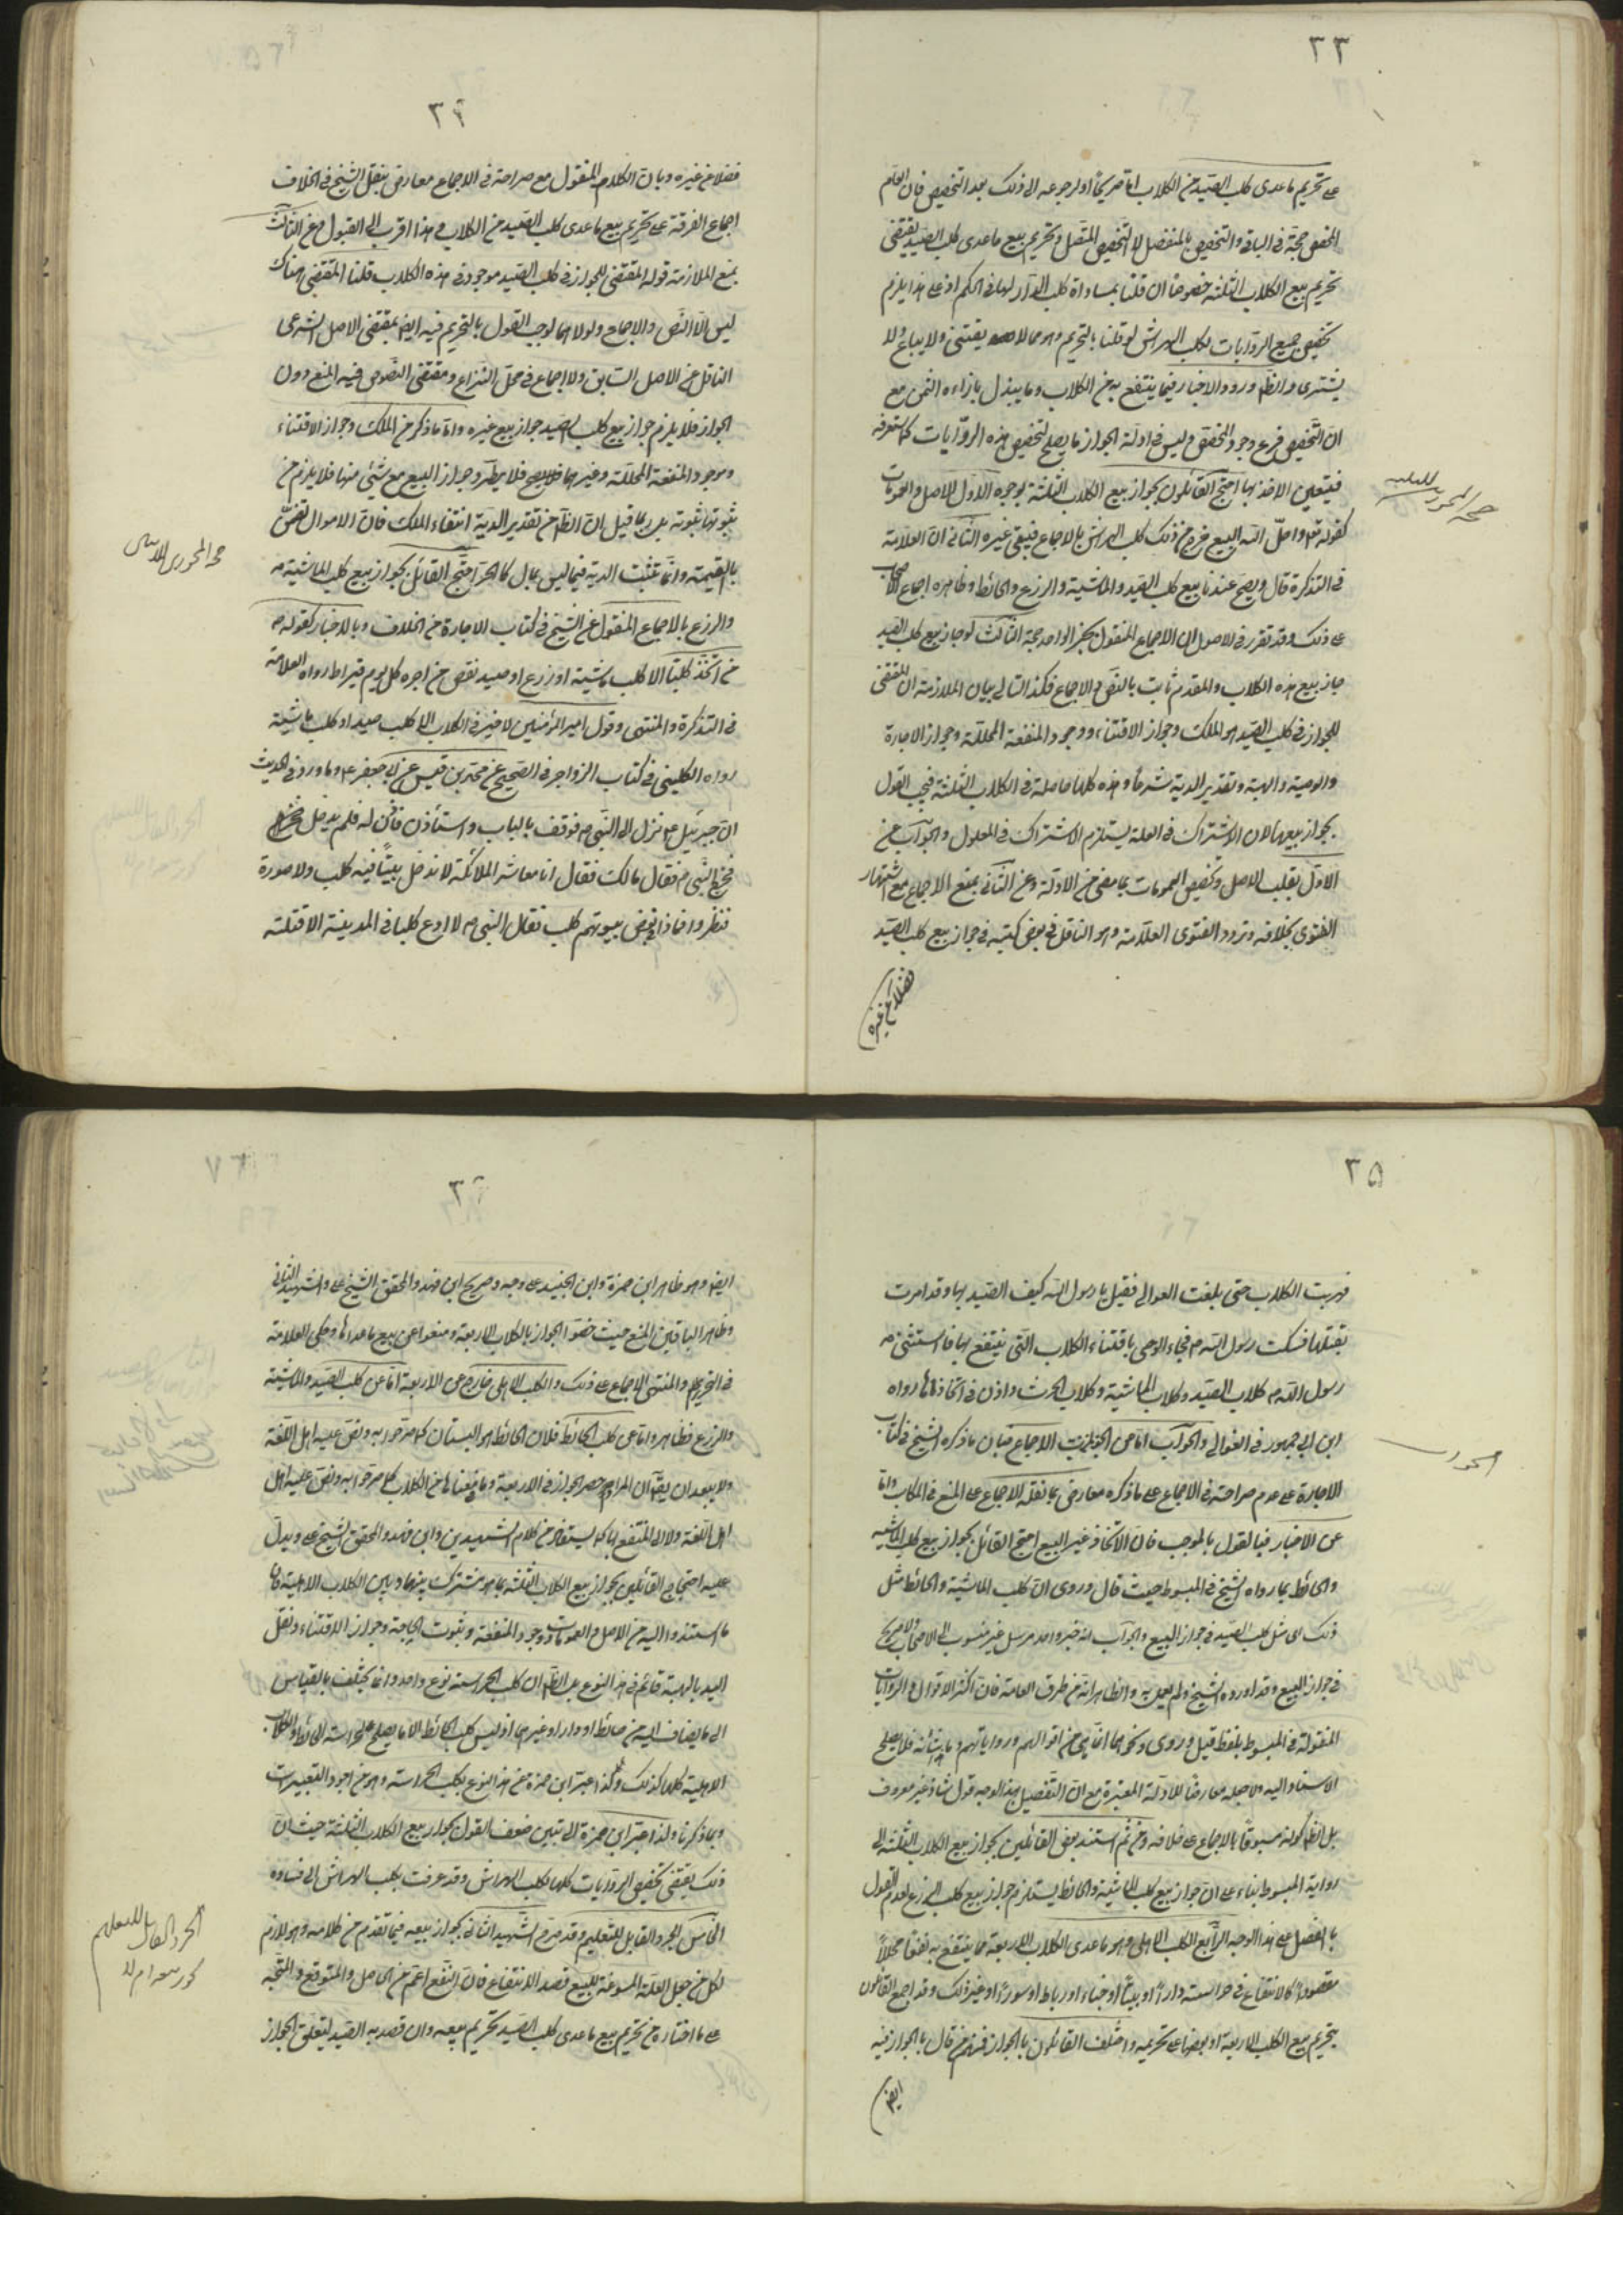 ٣٣
على تحريم ماعدى كلب الصيد من الكلاب اما صريحاً او لرجوعه الى ذلك بعد التخصيص فان العام
المخصص حجة فى الباقى والتخصيص بالمنفصل لا التخصيص المتصل وتحريم بيع ماعدى كلب الصيد يقتضى
تحريم بيع الكلاب الثلثة خصوصاً ان قلنا بمساواة كلب الدار لها فى الحكم اذ على هذا يلزم
تخصيص جميع الروايات بكلب الهراش لو قلنا بالتحريم وهو مما لا يقتنى ولا يباع ولا
يشترى والظ ورود الاخبار فيما ينتفع به من الكلاب وما يبذل بازاءه الثمن مع
ان التخصيص فرع وجود المخصص وليس فى ادلة الجواز ما يصلح لتخصيص هذه الروايات كما ستعرفه
فيتعين الاخذ بها احتج القائلون بجواز بيع الكلاب الثلثة بوجوه الاول الاصل والعمومات
كقوله تعالى واحل الله البيع خرج من ذلك كلب الهراش بالاجماع فيبقى غيره الثانى ان العلامة
فى التذكرة قال ويصح عندنا بيع كلب الصيد والماشية والزرع والحائط وظاهره اجماع الاصحاب
على ذلك وقد تقرر فى الاصول ان الاجماع المنقول بخبر الواحد حجة الثالث لو جاز بيع كلب الصيد
جاز بيع هذه الكلاب والمقدم ثابت بالنص والاجماع فكذا التالى بيان الملازمة ان المقتضى
للجواز فى كلب الصيد هو الملك وجواز الاقتناء ووجود المنفعة المحللة وجواز الاجارة
والوصية والهبة وتقدير الدية شرعاً وهذه كلها حاصلة فى الكلاب الثلثة فيجب القول
بجواز بيعها لان الاشتراك فى العلة يستلزم الاشتراك فى المعلول والجواب عن
الاول بقلب الاصل وتخصيص العمومات بما مضى من الادلة وعن الثانى بمنع الاجماع مع اشتهار
الفتوى بخلافه وتردد الفتوى العلامة وهو الناقل فى بعض كتبه فى جواز بيع كلب الصيد
فضلا عن غيره
حجة المجوزين للثلثة
فضلا عن غيره وبان الكلام المنقول مع صراحته فى الاجماع معارض بنقل الشيخ فى الخلاف
اجماع الفرقة على تحريم بيع ماعدى كلب الصيد من الكلاب وهذا اقرب الى القبول وعن الثالث
بمنع الملازمة قوله المقتضى للجواز فى كلب الصيد موجود فى هذه الكلاب قلنا المقتضى هناك
ليس الا النص والاجماع ولولاهما لوجب القول بالتحريم فيه ايض بمقتضى الاصل الشرعى
الناقل عن الاصل السابق ولا اجماع فى محل النزاع ومقتضى النصوص فيه المنع دون
الجواز فلا يلزم جواز بيع كلب الصيد جواز بيع غيره واما ما ذكر من الملك وجواز الاقتناء
ووجود المنفعة المحللة وغيرهما فلا يصح فلا يطرد جواز البيع مع شئ منها فلا يلزم من
ثبوتها ثبوته بل ربما قيل ان الظ من تقدير الدية انتفاء الملك فان الاموال تضمن
بالقيمة وانما تثبت الدية فيما ليس بمال كالحر احتج القائل بجواز بيع كلب الماشية
والزرع بالاجماع المنقول عن الشيخ فى كتاب الاجارة من الخلاف وبالاخبار كقوله ص
من اتخذ كلبا الا كلب ماشية او زرع او صيد نقص من اجره كل يوم قيراط رواه العلامة
فى التذكرة والمنتهى وقول امير المؤمنين لا خير فى الكلاب الا كلب صيد او كلب ماشية
رواه الكلينى فى كتاب الزواجر فى الصحيح عن محمد بن قيس عن ابى جعفر ع وما ورد فى الحديث
ان جبرئيل ع نزل الى النبى ص فوقف بالباب واستأذن فاذن له فلم يدخل
فخرج النبى ص فقال مالك فقال انا معاشر الملائكة لا ندخل بيتاً فيه كلب ولا صورة
فنظروا فاذا فى بعض بيوتهم كلب فقال النبى ص لا ادع كلبا فى المدينة الا قتلته
٣٥
فهربت الكلاب حتى بلغت العوالى فقيل يا رسول الله كيف الصيد بها وقد امرت
بقتلها فسكت رسول الله ص فجاء الوحى باقتناء الكلاب التى ينتفع بها فاستثنى
رسول الله ص كلاب الصيد وكلاب الماشية وكلاب الحرث واذن فى اتخاذها رواه
ابن ابى جمهور فى الغوالى والجواب اما عن الاجماع فبان ما ذكره الشيخ فى كتاب
الاجارة على عدم صراحته فى الاجماع على ما ذكره معارض بما نقله الاجماع على المنع فى المكاسب واما
عن الاخبار فبالقول بالموجب فان الاتخاذ غير البيع احتج القائل بجواز بيع كلب الماشية
والحائط بما رواه الشيخ فى المبسوط حيث قال وروى ان كلب الماشية والحائط مثل
ذلك اى مثل كلب الصيد فى جواز البيع والجواب انه خبر واحد مرسل غير منسوب الى الامام ولا صريح
فى جواز البيع وقد اورده الشيخ ولم يعمل به والظاهر انه من طرق العامة فان اكثر الاقوال والروايات
المنقولة فى المبسوط بلفظ قيل وروى ونحوهما انما هى من اقوالهم ورواياتهم وما شأنه فلا يصلح
الاستناد اليه ولا جعله معارضا للادلة المعتبرة مع ان التفصيل بهذا الوجه قول شاذ غير معروف
بل الظ كونه مسبوقاً بالاجماع على خلافه ومن ثم استند بعض القائلين بجواز بيع الكلاب الثلثة الى
رواية المبسوط بناء على ان جواز بيع كلب الماشية والحائط يستلزم جواز بيع كلب الزرع لعدم القول
بالفصل على هذا الوجه الرابع الكلب الاهلى وهو ماعدى الكلاب الاربعة مما ينتفع به نفعا محللاً
مقصوداً كالانتفاع فى حراسته داراً او بيتاً او خباء او رباط او سوراً او غير ذلك وقد اجمع القائلون
بتحريم بيع الكلب الاربعة او بعضها على تحريمه واختلف القائلون بالجواز فمنهم من قال بالجواز فيه
ايض
ايض وهو ظاهر ابن حمزة وابن الجنيد على وجه وصريح ابن فهد والمحقق الشيخ على والشهيد الثانى
وظاهر الباقين المنع حيث خصوا الجواز بالكلاب الاربعة ومنعوا عن بيع ماعداها وحكى العلامة
فى التحرير والمنتهى الاجماع على ذلك والكلب الاهلى خارج عن الاربعة اما عن كلب الصيد والماشية
والزرع فظاهر واما عن كلب الحائط فلان الحائط هو البستان كما صرحوا به ونص عليه اهل اللغة
ولا يبعد ان يق ان المراد حصر الجواز فى الاربعة وما فى معناها من الكلاب كما صرحوا به ونص عليه اهل
اهل اللغة ولا المنتفع بها كما يستفاد من كلام الشهيدين وابن فهد والمحقق الشيخ على ويدل
عليه احتجاج القائلين بجواز بيع الكلاب الثلثة بما هو مشترك بينها وبين الكلاب الاهلية فان
ما استندوا اليه من الاصل والعمومات ووجود المنفعة وثبوت الحاجة وجواز الاقتناء ونقل
اليد بالهبة قائم فى هذا النوع بل الظ ان كلب الحراسة نوع واحد وانما يختلف بالقياس
الى ما يضاف اليه من حائط او دار او غيرهما اذ ليس كلب الحائط الا ما يصلح لحراسة الحائط والكلاب
الاهلية كلها كذلك ولذا عبر ابن حمزة عن هذا النوع بكلب الحراسة وهو من اجود التعبيرات
وبما ذكرنا ولذا عبر ابن حمزة الى تبين ضعف القول بجواز بيع الكلاب الثلثة حيث ان
ذلك يقتضى تخصيص الروايات كلها بكلب الهراش وقد عرفت بكلب الهراش الى فساده
الخامس الجرو القابل للتعليم وقد صرح الشهيد الثانى بجواز بيعه فيما تقدم من كلامه وهو لازم
لكل من جعل العلة المسوغة للبيع قصد الانتفاع فان النفع اعم من الحاصل والمتوقع والمتجه
على ما اختاره من تحريم بيع ماعدى كلب الصيد تحريم بيعه وان قصد به الصيد لتعلق الجواز
الجرو القابل للتعليم